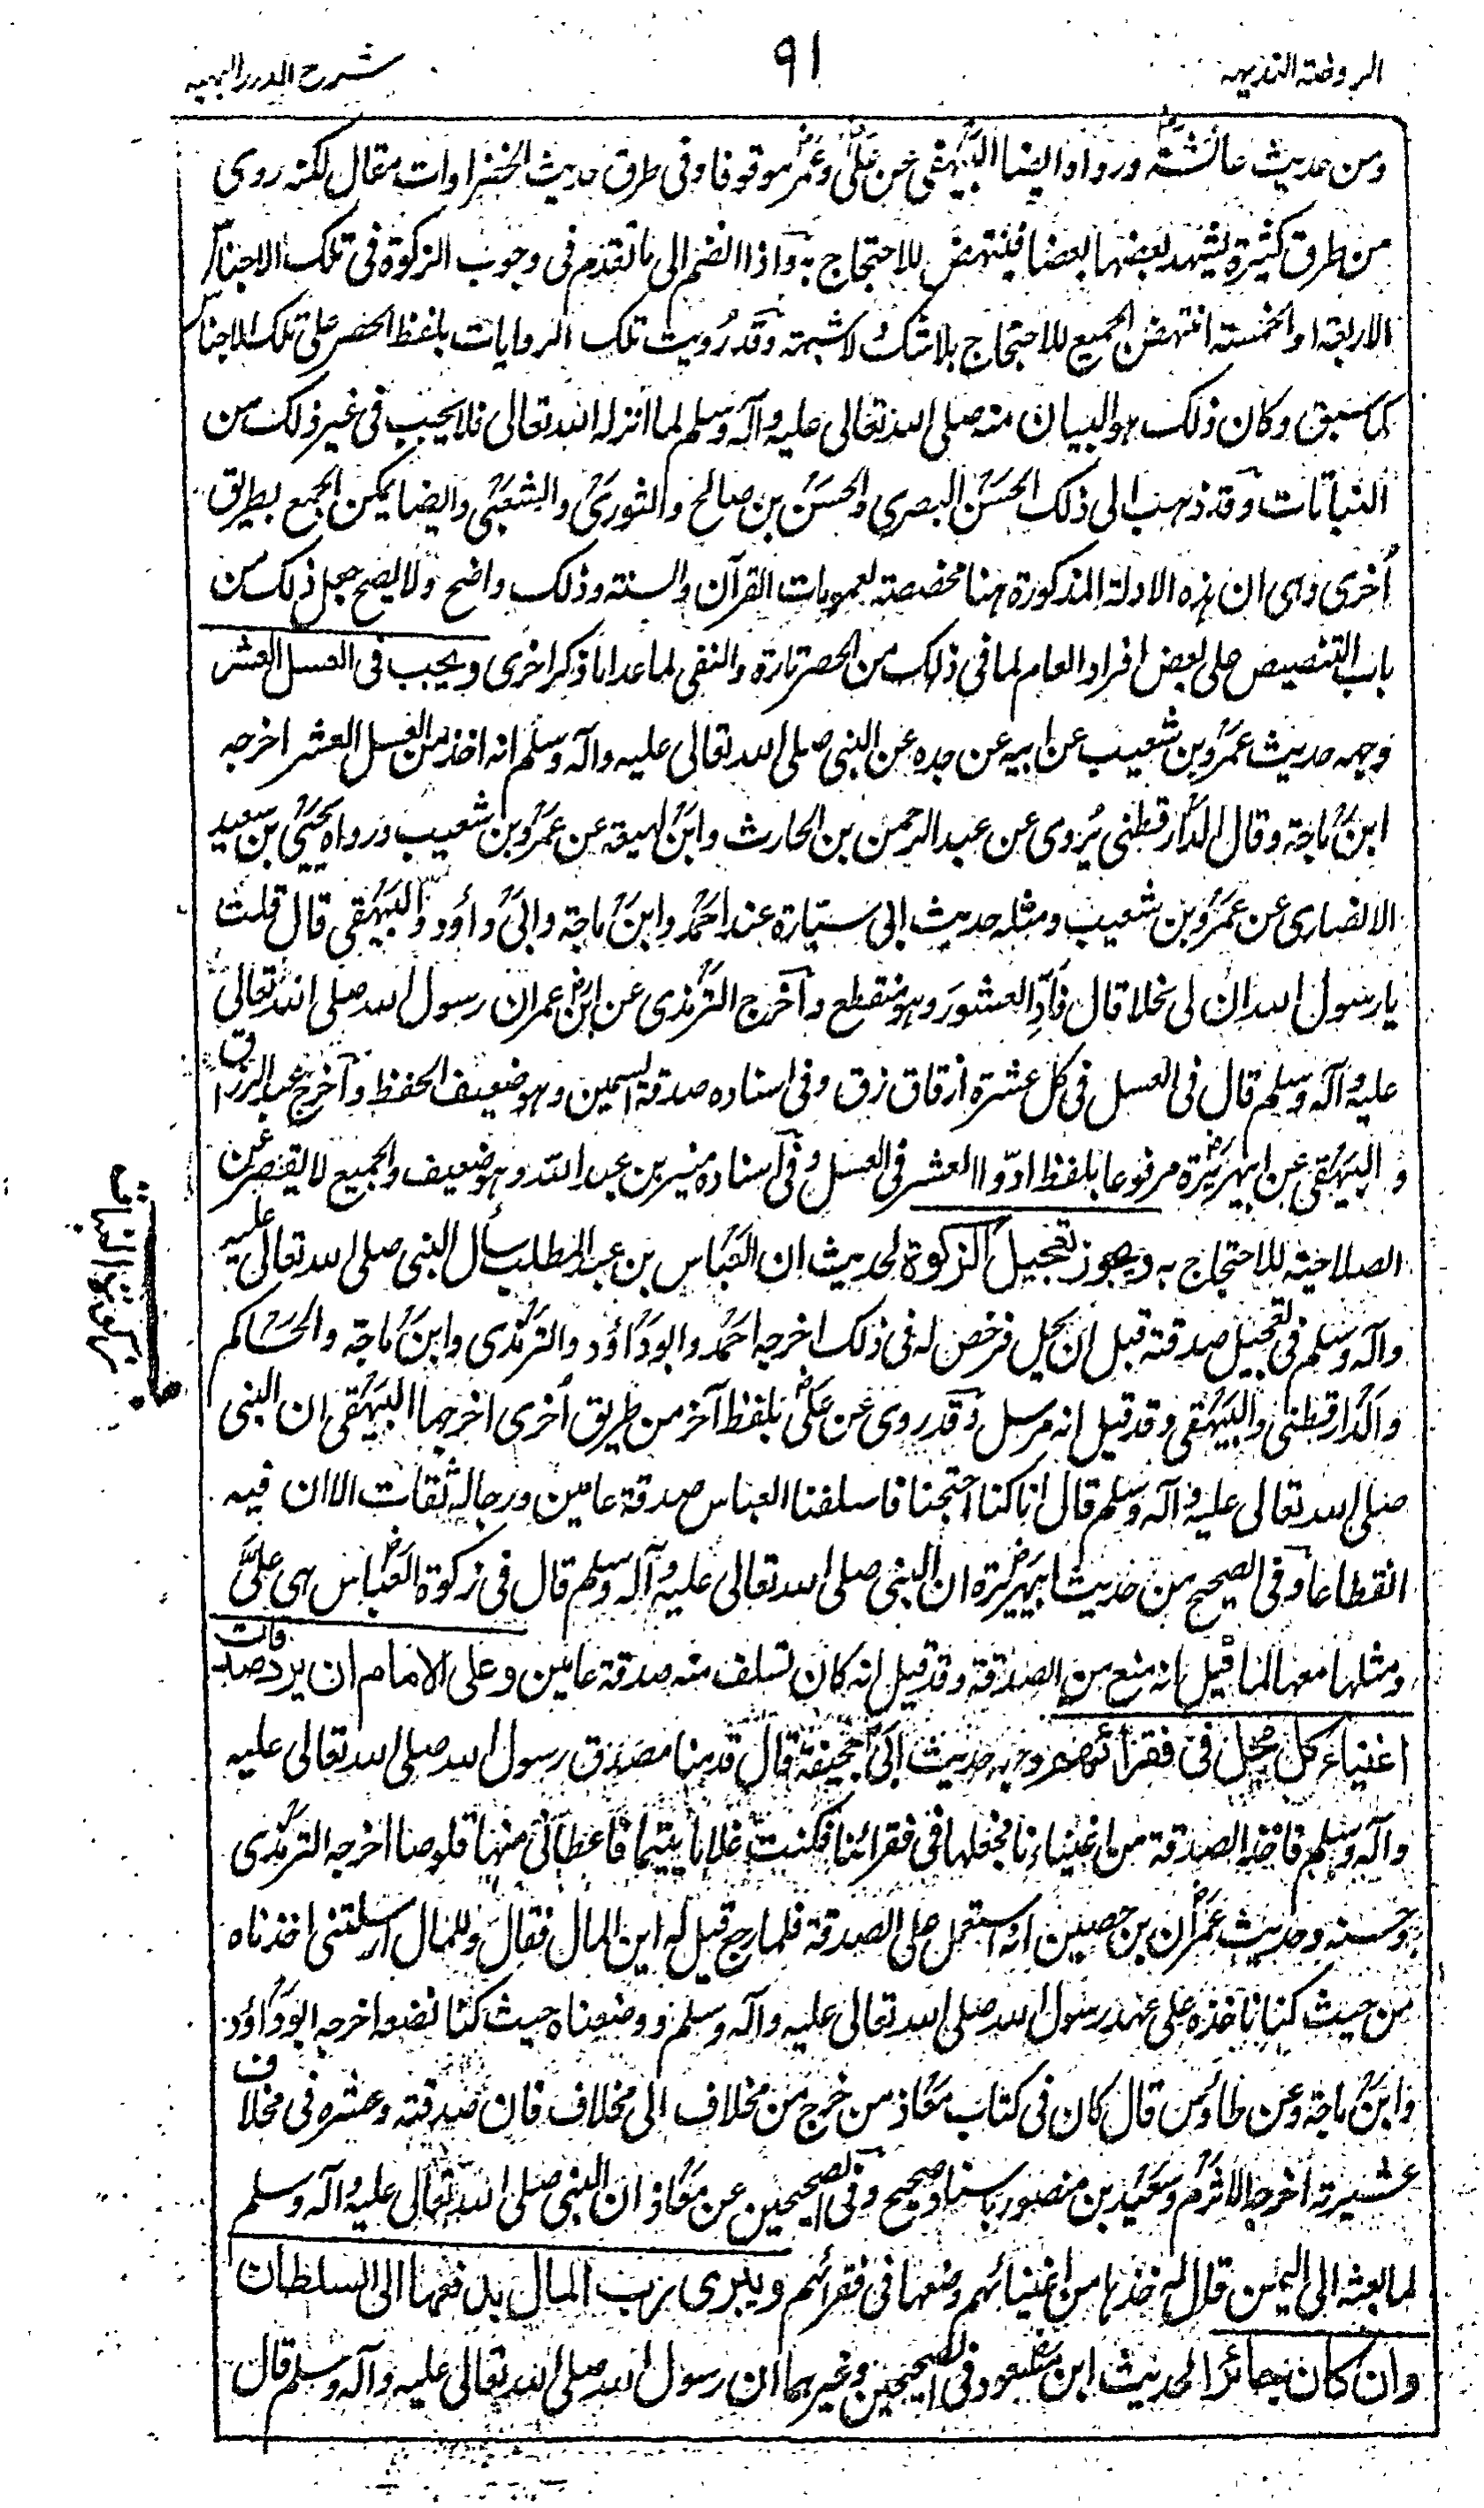 الروضة الندية
٩١
شرح الدرر البهية
ومن حديث عائشة ورواه ايضا البيهقي عن علي وعمر موقوفا وفي طرق حديث الخضراوات مقال لكنه روى
من طرق كثيرة يشهد بعضها لبعض فينتهض للاحتجاج به واذا انضم الى ما تقدم في وجوب الزكوة في تلك الاجناس
الاربعة او الخمسة انتهض الجميع للاحتجاج بلا شك ولا شبهة وقد رُويت تلك الروايات بلفظ الحصر على تلك الاجناس
كما سبق وكان ذلك هو البيان منه صلى الله تعالى عليه وآله وسلم لما انزله الله تعالى فلا يجب في غير ذلك من
النباتات وقد ذهب الى ذلك الحسن البصري والحسن بن صالح والثوري والشعبي وايضا يمكن الجمع بطريق
اُخرى وهي ان هذه الادلة المذكورة هنا مخصصة لعمومات القرآن والسنة وذلك واضح ولا يصح جعل ذلك من
باب التنصيص على بعض افراد العام لما في ذلك من الحصر تارة والنفي لما عدا ما ذكر اخرى ويجب في العسل العشر
وجهه حديث عمرو بن شعيب عن ابيه عن جده عن النبي صلى الله تعالى عليه وآله وسلم انه اخذ من العسل العشر اخرجه
ابن ماجة وقال الدارقطني يُروى عن عبد الرحمن بن الحارث وابن لهيعة عن عمرو بن شعيب ورواه يحيى بن سعيد
الانصاري عن عمرو بن شعيب ومثله حديث ابي سيارة عند احمد وابن ماجة وابي داؤد والبيهقي قال قلت
يا رسول الله ان لي نخلا قال فأدِّ العشورَ وهو منقطع وآخرج الترمذي عن ابن عمر ان رسول الله صلى الله تعالى
عليه وآله وسلم قال في العسل في كل عشرة ازقاق زق وفي اسناده صدقة السمين وهو ضعيف الحفظ وآخرج عبد الرزاق
و البيهقي عن ابيهريرة مرفوعا بلفظ ادّوا العشر في العسل وفي اسناده منير بن عبد الله وهو ضعيف والجميع لا يقصر عن
الصلاحية للاحتجاج به ويجوز تعجيل الزكوة لحديث ان العباس بن عبد المطلب سأل النبي صلى الله تعالى عليه
وآله وسلم في تعجيل صدقته قبل ان يحل فرخص له في ذلك اخرجه احمد وابو داؤد والترمذي وابن ماجة والحاكم
والدارقطني والبيهقي وقد قيل انه مرسل وقد روى عن علي بلفظ آخر من طريق اُخرى اخرجها البيهقي ان النبي
صلى الله تعالى عليه وآله وسلم قال انا كنا احتجنا فاسلفنا العباس صدقة عامين ورجاله ثقات الا ان فيه
انقطاعا وفي الصحيح من حديث ابيهريرة ان النبي صلى الله تعالى عليه وآله وسلم قال في زكوة العباس هي عليَّ
ومثلها معها لما قيل انه منع من الصدقة وقد قيل انه كان تسلف منه صدقة عامين وعلى الامام ان يرد صدقات
اغنياء كل محل في فقرائهم وجهه حديث ابي جحيفة قال قدم علينا مصدق رسول الله صلى الله تعالى عليه
وآله وسلم فاخذ الصدقة من اغنياءنا فجعلها في فقرائنا فكنت غلاما يتيما فاعطاني منها قلوصا اخرجه الترمذي
وحسنه وحديث عمران بن حصين انه استعمل على الصدقة فلما رجع قيل له اين المال فقال وللمال ارسلتني اخذناه
من حيث كنا ناخذه على عهد رسول الله صلى الله تعالى عليه وآله وسلم ووضعناه حيث كنا نضعه اخرجه ابو داؤد
وابن ماجة وعن طاؤس قال كان في كتاب معاذ من خرج من مخلاف الى مخلاف فان صدقته وعشره في مخلاف
عشيرته اخرجه الاثرم وسعيد بن منصور باسناد صحيح وفي الصحيحين عن معاذ ان النبي صلى الله تعالى عليه وآله وسلم
لما بعثه الى اليمن قال له خذها من اغنيائهم وضعها في فقرائهم ويبرى رب المال بدفعها الى السلطان
وان كان جائرا لحديث ابن مسعود في الصحيحين وغيرهما ان رسول الله صلى الله تعالى عليه وآله وسلم قال
زكوة النبات